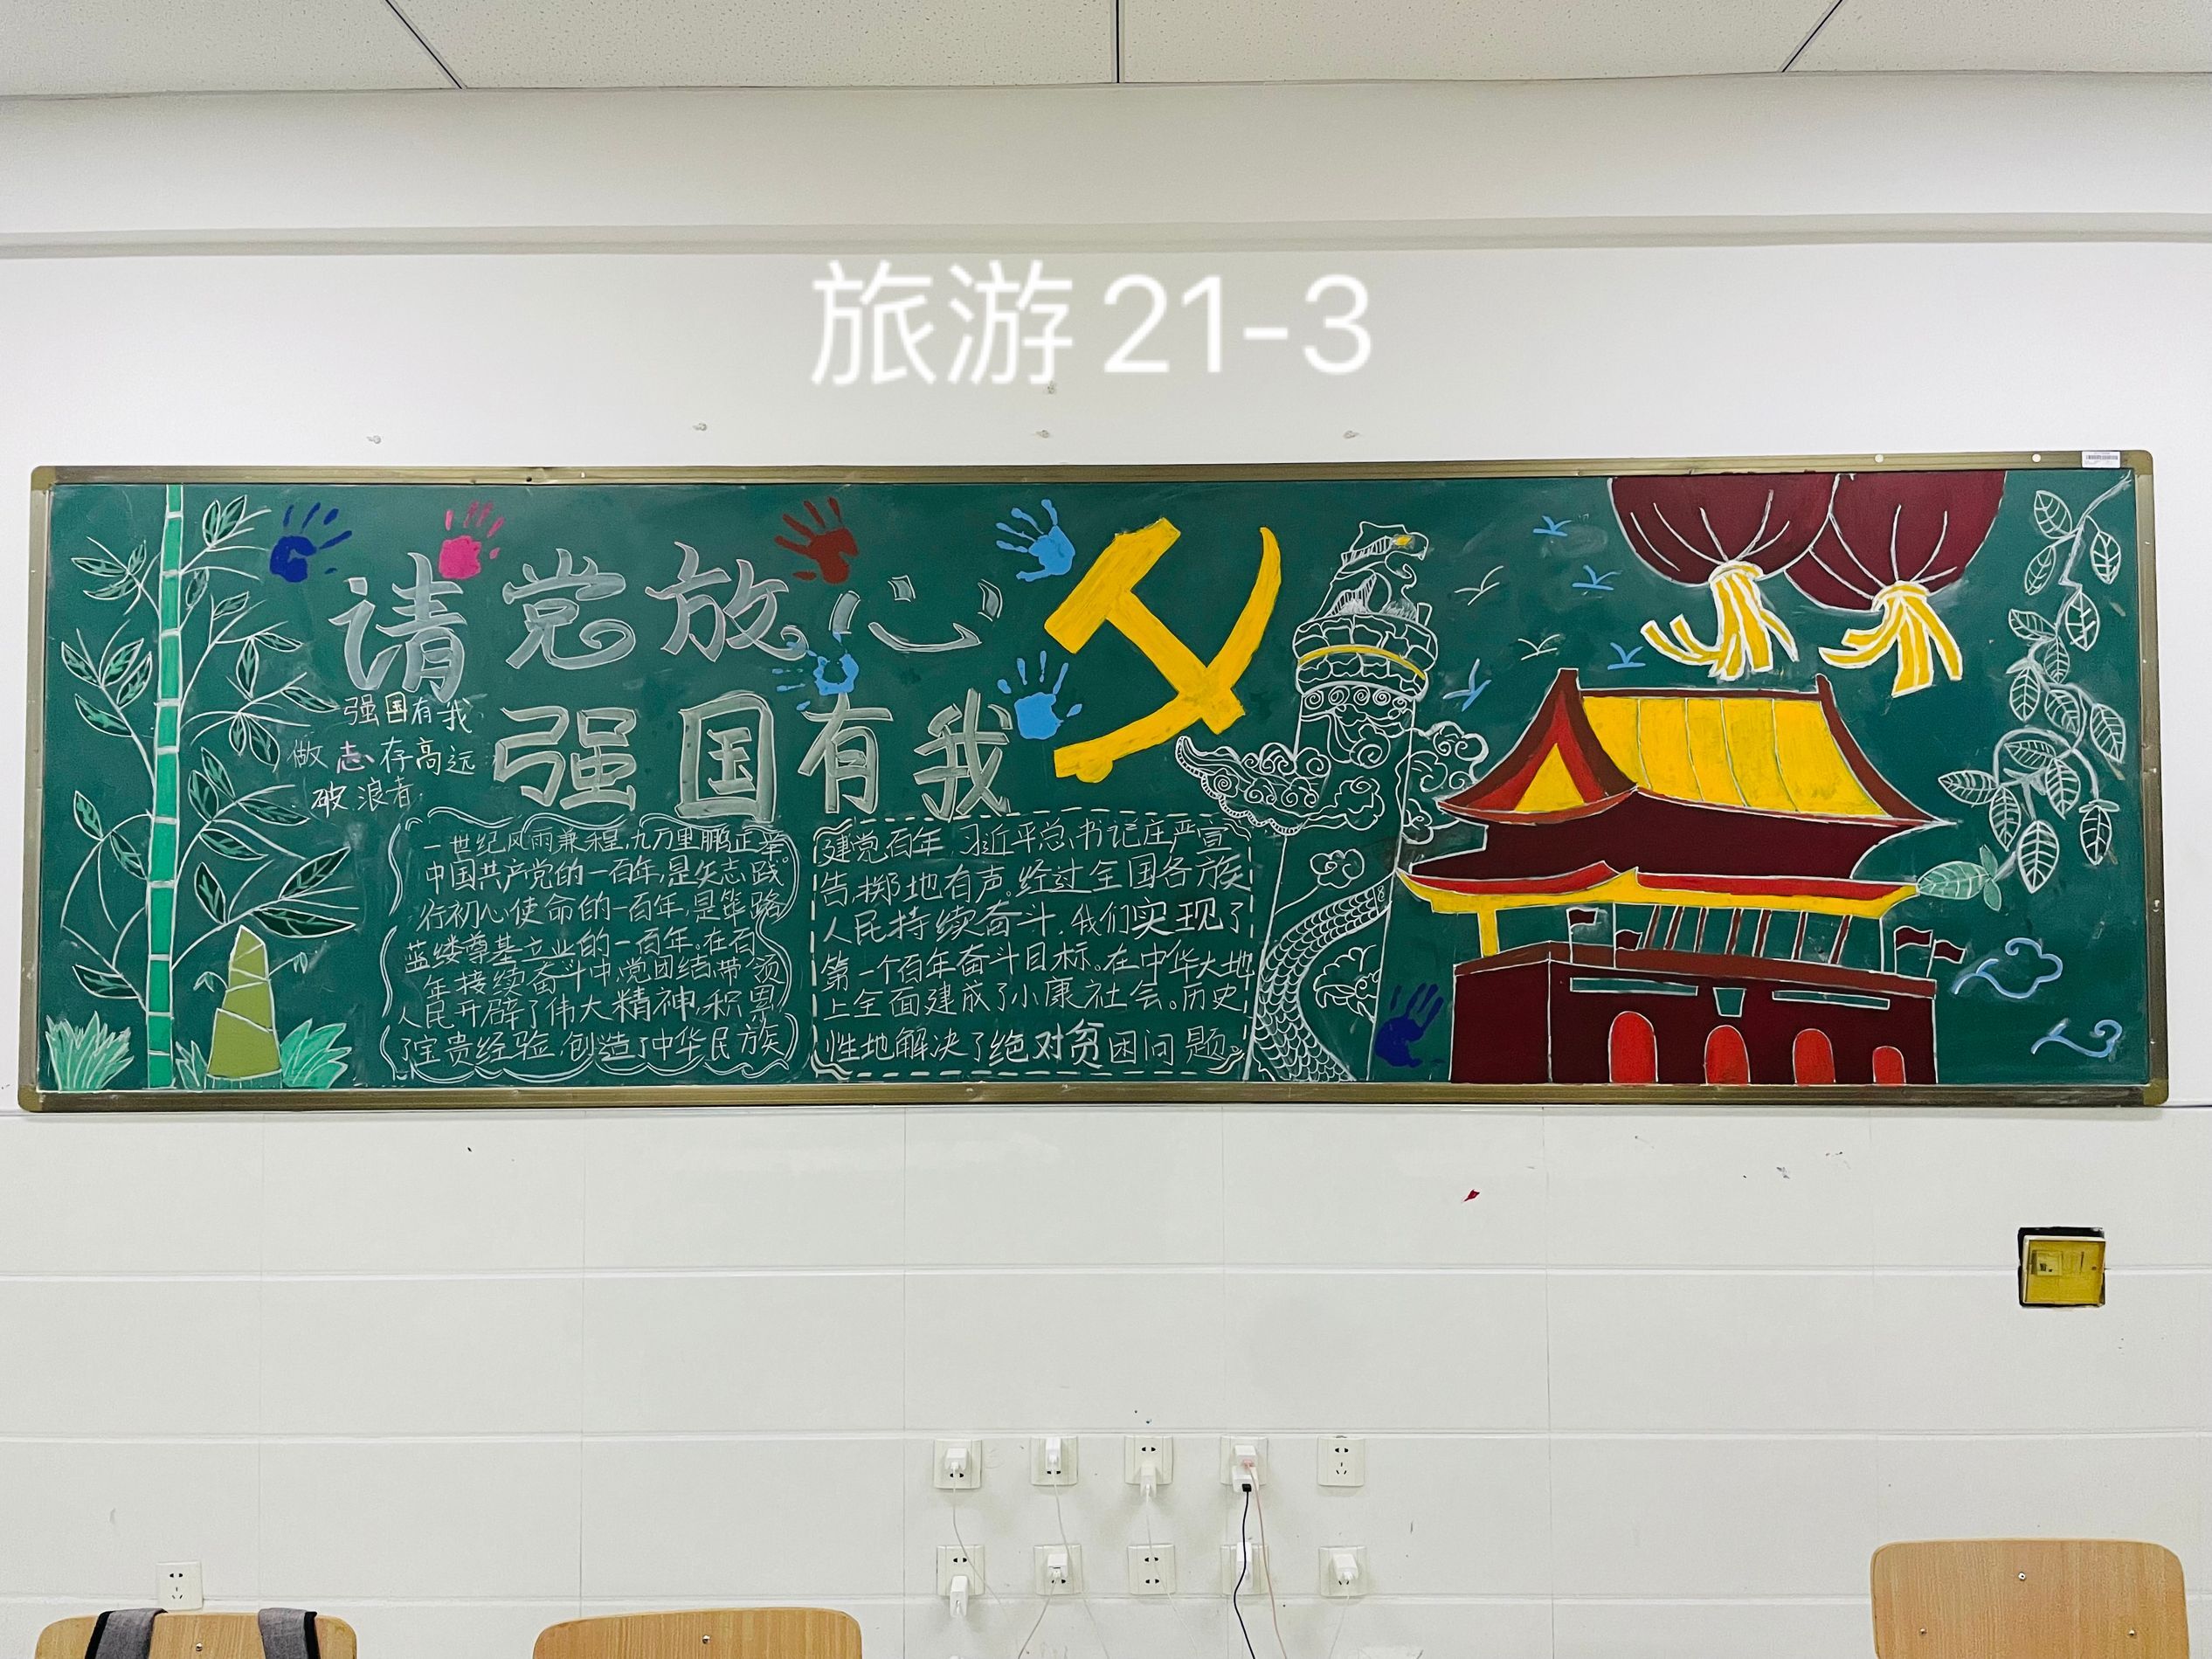 旅游21-3
请党放心
强国有我
强国有我
做志存高远
破浪者
一世纪风雨兼程,九万里鹏正举。
中国共产党的一百年,是矢志践
行初心使命的一百年,是筚路
蓝缕尊基立业的一百年。在百
年接续奋斗中,党团结带领
人民开辟了伟大精神,积累
了宝贵经验,创造了中华民族
建党百年,习近平总书记庄严宣
告,掷地有声。经过全国各族
人民持续奋斗,我们实现了
第一个百年奋斗目标。在中华大地
上全面建成了小康社会。历史
性地解决了绝对贫困问题。